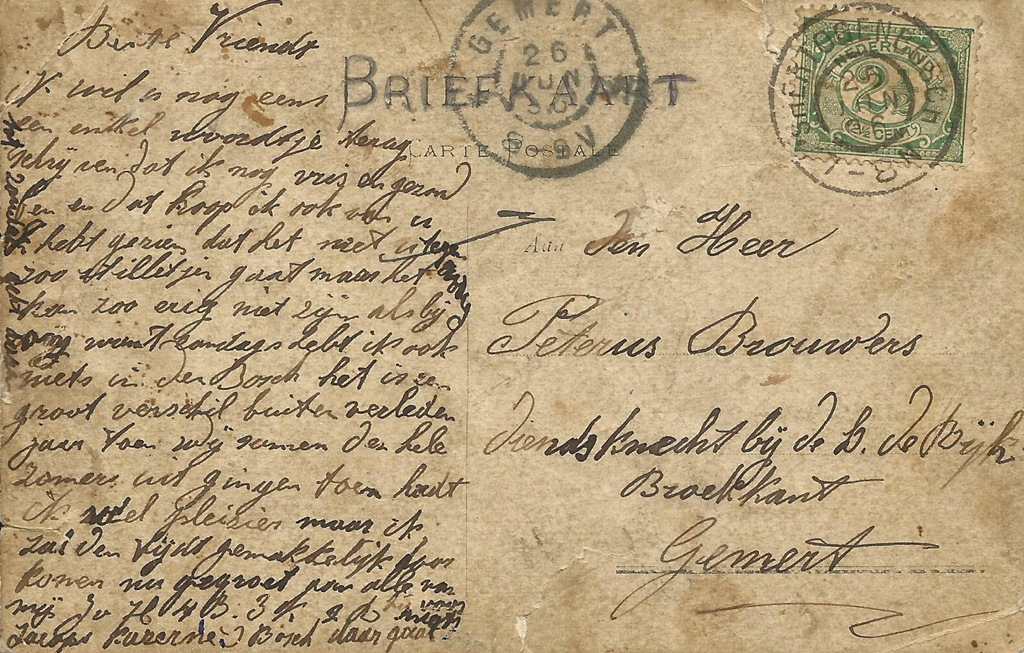 Beste Vriendt
ik wil u nog eens
een enkel woordtje
schrijven dat ik nog vris en gezond
ben en dat hoop ik ook van u
ik hebt gezien dat het niet
zoo stilletjes gaat maar het
kan zoo erig niet zijn als bij
ons want zondags hebt ik ook
niets in den Bosch het is een
groot verschil buiten verleden
jaar toen wij samen den hele
zomers uit gingen toen hadt
ik veel pleizier maar ik
zal den tijdt gemakkelijk door
komen nu gegroet van alle van
mij 4 B. 3
kazerne Bosch
BRIEFKAART
CARTE POSTALE
GEMERT
26 JUN
2½
(2½ CENT)
Aan Den Heer
Peterus Brouwers
diendsknecht bij de
Broekkant
Gemert